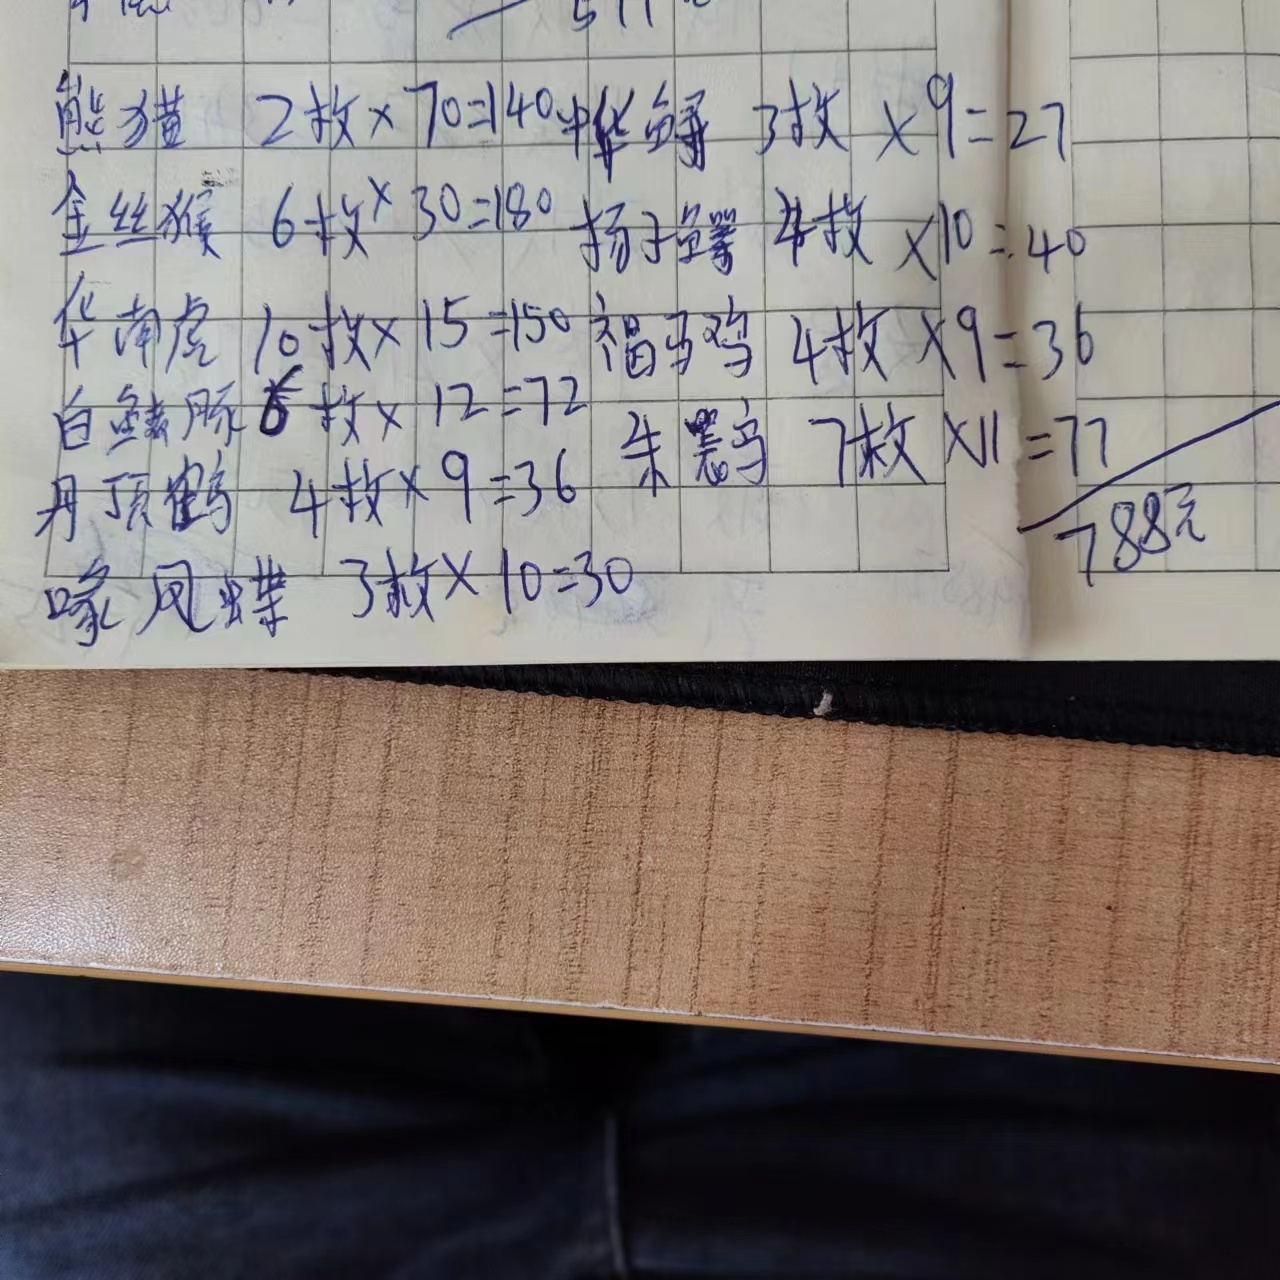 熊猫 2枚×70=140 中华鲟 3枚×9=27
金丝猴 6枚×30=180 扬子鳄 4枚×10=40
华南虎 10枚×15=150 褐马鸡 4枚×9=36
白鱀豚 6枚×12=72 朱鹮 7枚×11=77
丹顶鹤 4枚×9=36
788元
喙凤蝶 3枚×10=30